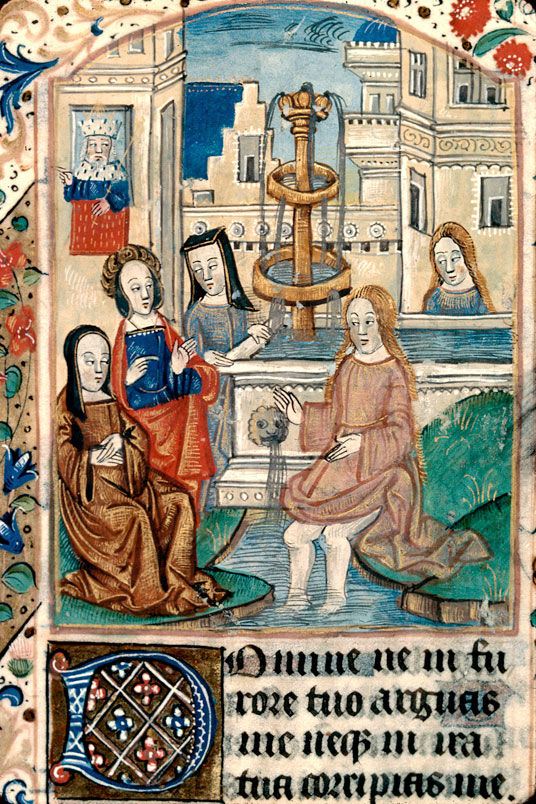 Domine ne in fu
rore tuo arguas
me neq; in ira
tua corripias me.